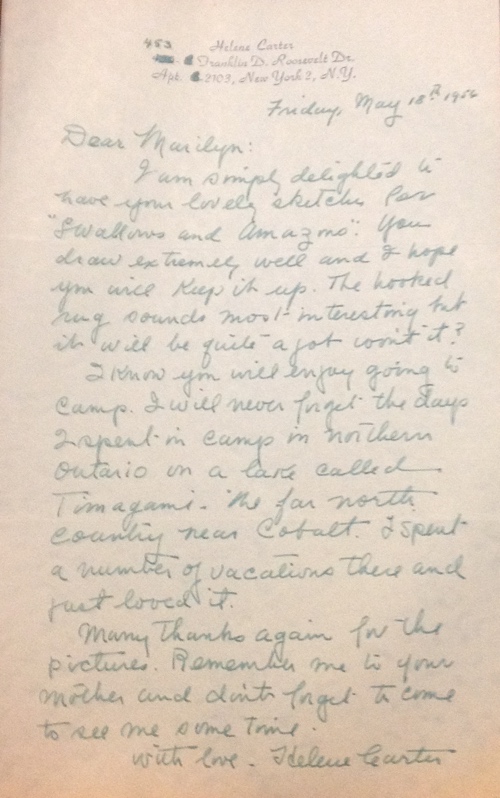 453 Helene Carter
Franklin D. Roosevelt Dr.
Apt. 2103, New York 2, N.Y.
Friday, May 18th 1956
Dear Marilyn:
I am simply delighted to
have your lovely sketches for
"Swallows and Amazons". You
draw extremely well and I hope
you will keep it up. The hooked
rug sounds most interesting but
it will be quite a job won't it?
I know you will enjoy going to
camp. I will never forget the days
I spent in camp in northern
Ontario on a lake called
Timagami - the far north
country near Cobalt. I spent
a number of vacations there and
just loved it.
Many thanks again for the
pictures. Remember me to your
mother and don't forget to come
to see me some time.
with love - Helene Carter